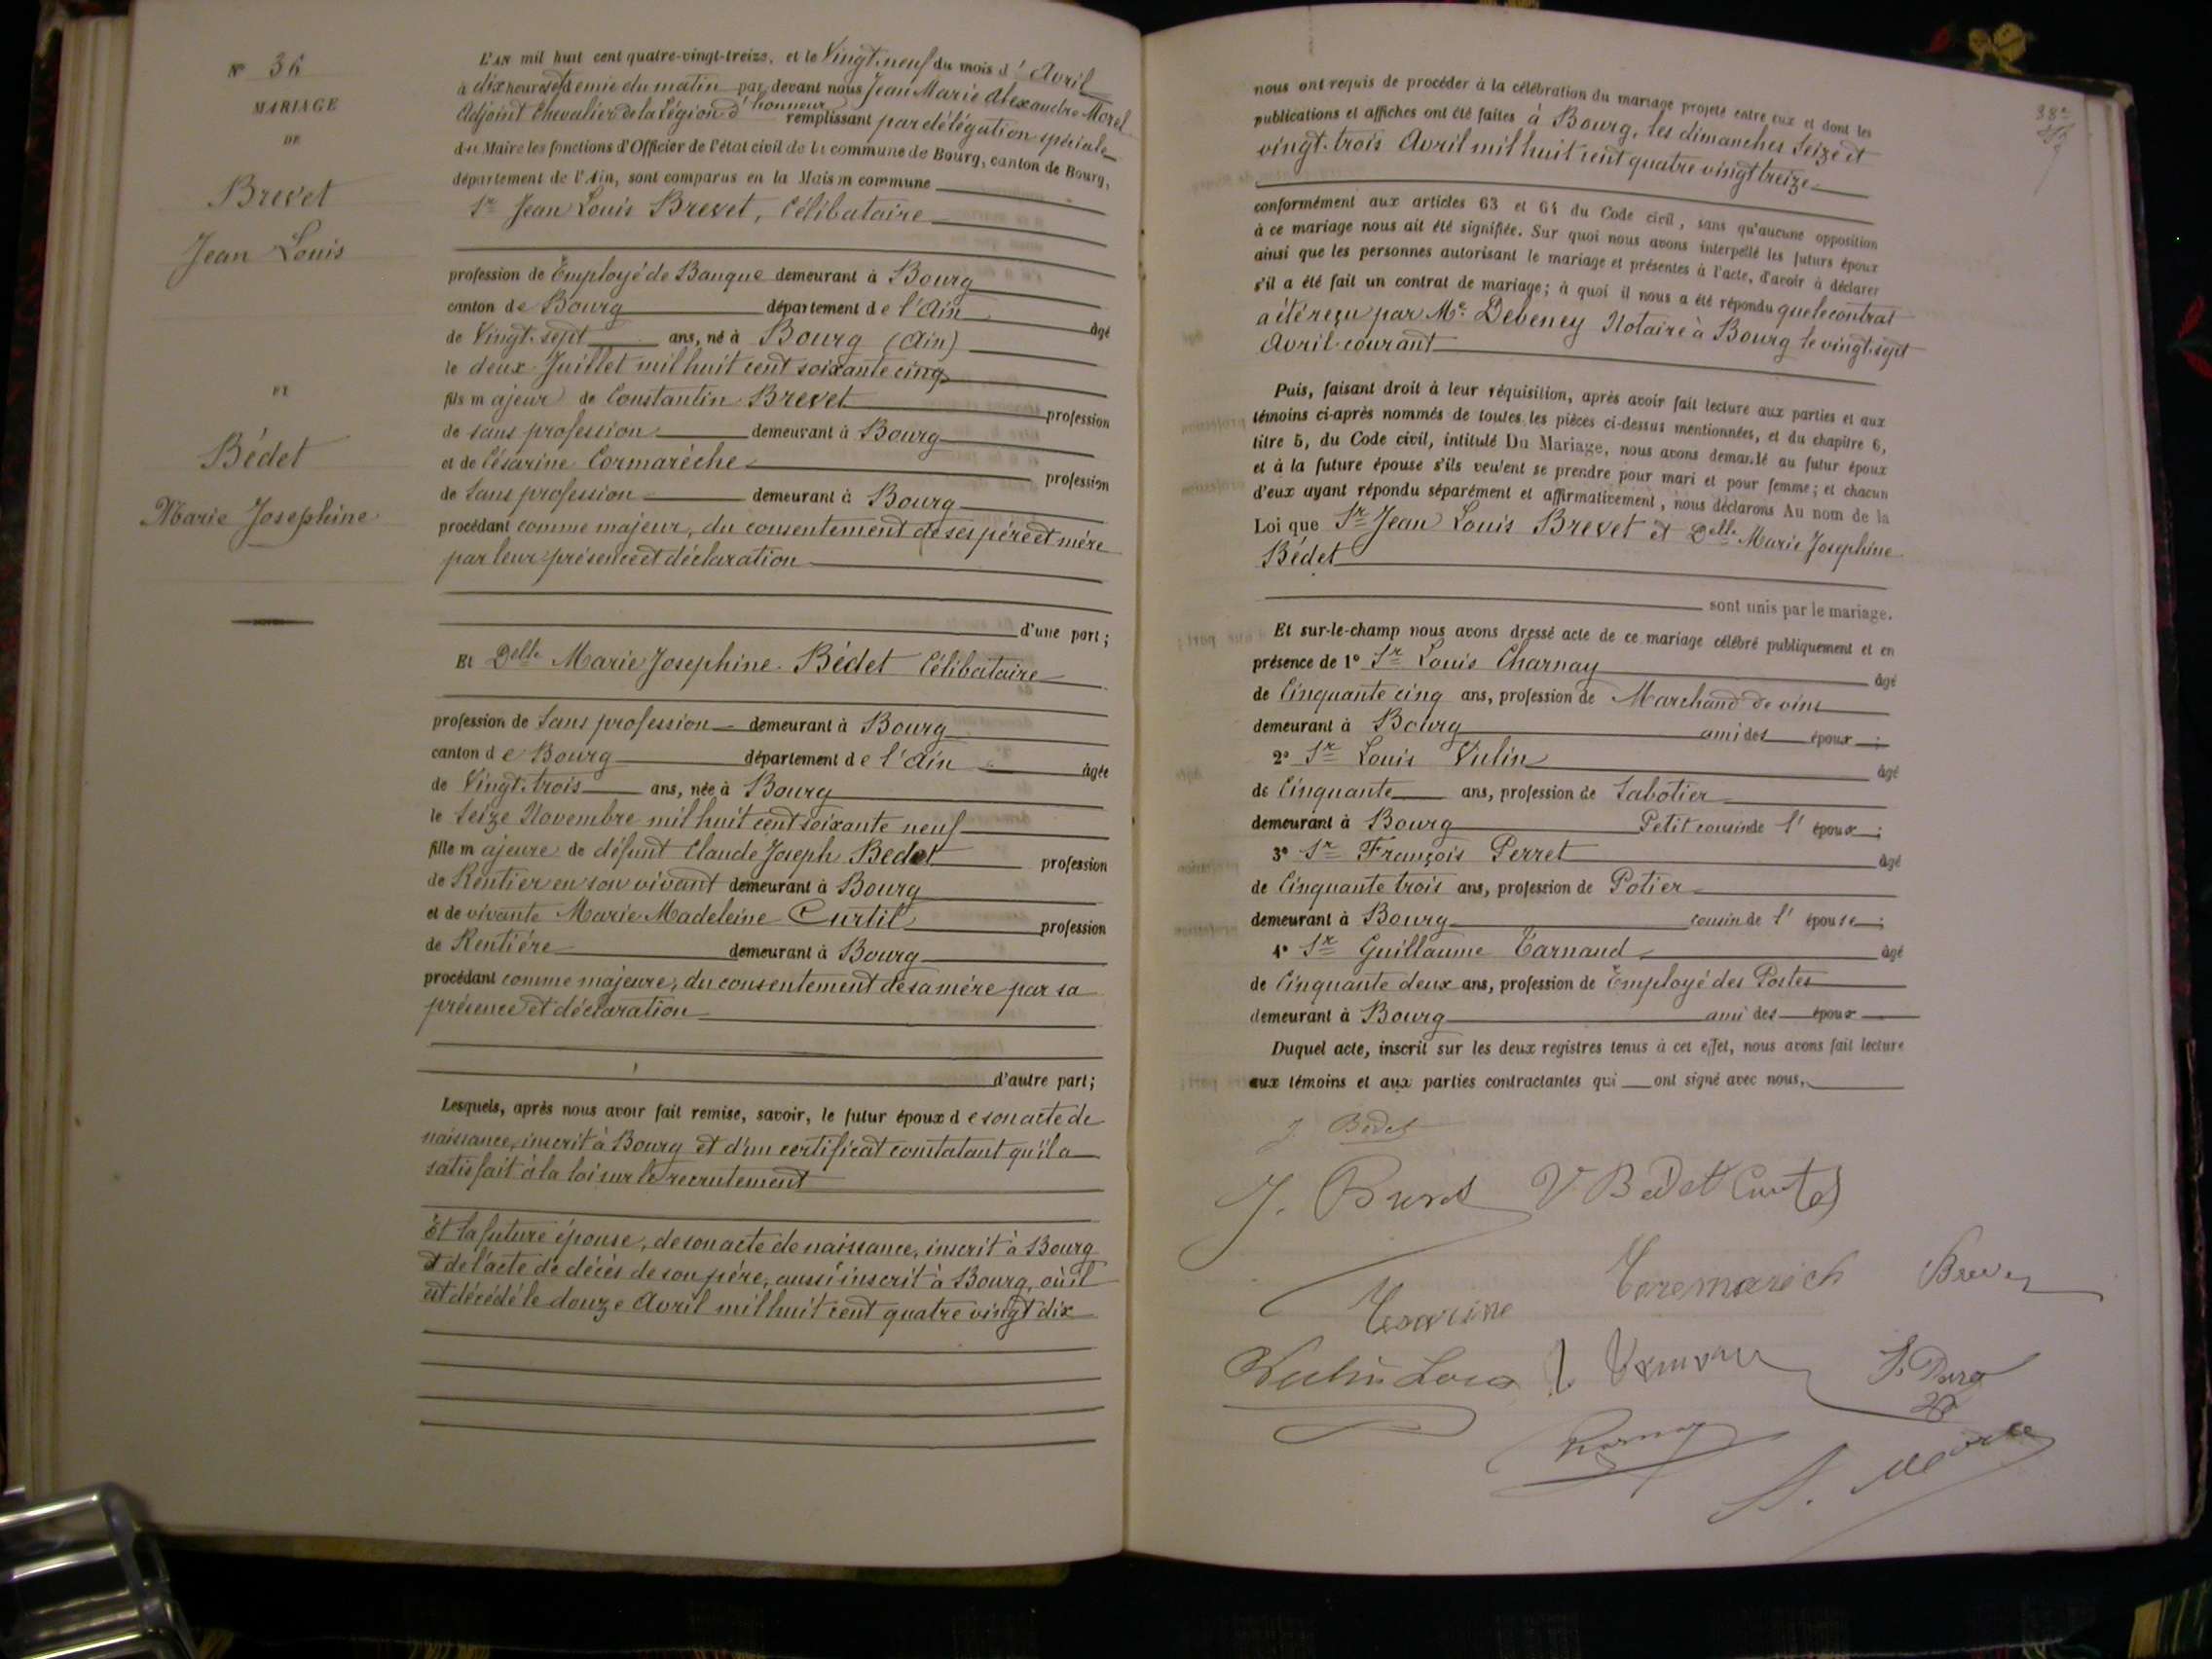 N° 36
MARIAGE
DE
Brevet
Jean Louis
ET
Bédet
Marie Josephine
L'AN mil huit cent quatre-vingt-treize, et le Vingt-neuf du mois d'Avril
à dix heures et demie du matin par devant nous Jean Marie Alexandre Morel
Adjoint Chevalier de la Légion d'honneur remplissant par délégation spéciale
du Maire les fonctions d'Officier de l'état civil de la commune de Bourg, canton de Bourg,
département de l'Ain, sont comparus en la Maison commune
Sr Jean Louis Brevet, Célibataire
profession de Employé de Banque demeurant à Bourg
canton de Bourg département de l'Ain âgé
de Vingt-sept ans, né à Bourg (Ain)
le deux Juillet mil huit cent soixante cinq
fils majeur de Constantin Brevet profession
de sans profession demeurant à Bourg
et de Césarine Cormarèche profession
de Sans profession demeurant à Bourg
procédant comme majeur, du consentement de ses père et mère
par leur présence et déclaration
d'une part;
Et Delle Marie Josephine Bédet Célibataire
profession de Sans profession demeurant à Bourg
canton de Bourg département de l'Ain âgée
de Vingt-trois ans, née à Bourg
le Seize Novembre mil huit cent soixante neuf
fille majeure de défunt Claude Joseph Bedet profession
de Rentier en son vivant demeurant à Bourg
et de vivante Marie Madeleine Curtil profession
de Rentière demeurant à Bourg
procédant comme majeure, du consentement de sa mère par sa
présence et déclaration
d'autre part;
Lesquels, après nous avoir fait remise, savoir, le futur époux de son acte de
naissance, inscrit à Bourg et d'un certificat constatant qu'il a
satisfait à la loi sur le recrutement
Et la future épouse, de son acte de naissance, inscrit à Bourg
et de l'acte de décès de son père, aussi inscrit à Bourg, où il
est décédé le douze Avril mil huit cent quatre vingt dix
38e
nous ont requis de procéder à la célébration du mariage projeté entre eux et dont les
publications et affiches ont été faites à Bourg, les dimanches Seize et
vingt-trois Avril mil huit cent quatre vingt treize
conformément aux articles 63 et 64 du Code civil, sans qu'aucune opposition
à ce mariage nous ait été signifiée. Sur quoi nous avons interpellé les futurs époux
ainsi que les personnes autorisant le mariage et présentes à l'acte, d'avoir à déclarer
s'il a été fait un contrat de mariage; à quoi il nous a été répondu que le contrat
a été reçu par Me Debeney Notaire à Bourg le vingt-sept
Avril courant
Puis, faisant droit à leur réquisition, après avoir fait lecture aux parties et aux
témoins ci-après nommés de toutes les pièces ci-dessus mentionnées, et du chapitre 6,
titre 5, du Code civil, intitulé Du Mariage, nous avons demandé au futur époux
et à la future épouse s'ils veulent se prendre pour mari et pour femme; et chacun
d'eux ayant répondu séparément et affirmativement, nous déclarons Au nom de la
Loi que Sr Jean Louis Brevet et Delle Marie Josephine
Bédet
sont unis par le mariage.
Et sur-le-champ nous avons dressé acte de ce mariage célébré publiquement et en
présence de 1° Sr Louis Charnay âgé
de Cinquante cinq ans, profession de Marchand de vins
demeurant à Bourg ami des époux;
2° Sr Louis Vulin âgé
de Cinquante ans, profession de Sabotier
demeurant à Bourg Petit cousin de l'époux;
3° Sr François Perret âgé
de Cinquante trois ans, profession de Potier
demeurant à Bourg cousin de l'épouse;
4° Sr Guillaume Tarnaud âgé
de Cinquante deux ans, profession de Employé des Postes
demeurant à Bourg ami des époux
Duquel acte, inscrit sur les deux registres tenus à cet effet, nous avons fait lecture
aux témoins et aux parties contractantes qui ont signé avec nous,
J. Bédet
J. Brevet V Bedet Curtil
Cesarine Coremarech Brevet
Vulin Louis
A. Morel